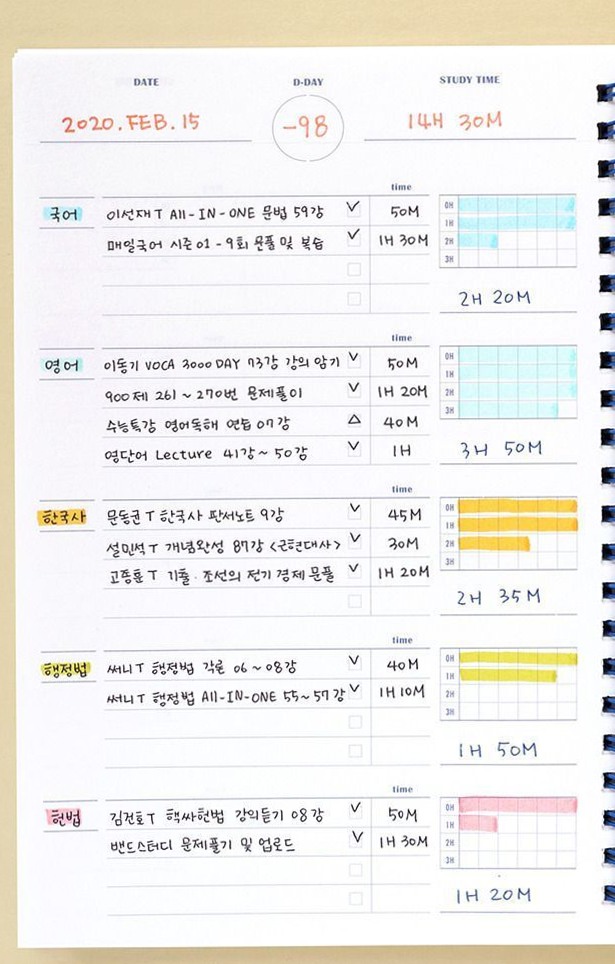 DATE D-DAY STUDY TIME
2020.FEB.15 -98 14H 30M
time
국어 이선재T All-IN-ONE 문법 59강 50M 0H
매일국어 시즌01-9회 문풀 및 복습 1H 30M 1H
2H
3H
2H 20M
time
영어 이동기 VOCA 3000 DAY 73강 강의 암기 50M 0H
900제 261~270번 문제풀이 1H 20M 1H
수능특강 영어독해 연습 07강 40M 2H
영단어 Lecture 41강~50강 1H 3H
3H 50M
time
한국사 문동균T 한국사 판서노트 9강 45M 0H
설민석T 개념완성 87강 <근현대사> 30M 1H
고종훈T 기출·조선의 전기 경제 문풀 1H 20M 2H
3H
2H 35M
time
행정법 써니T 행정법 각론 06~08강 40M 0H
써니T 행정법 All-IN-ONE 55~57강 1H 10M 1H
2H
3H
1H 50M
time
헌법 김건호T 핵싸헌법 강의듣기 08강 50M 0H
밴드스터디 문제풀기 및 업로드 1H 30M 1H
2H
3H
1H 20M